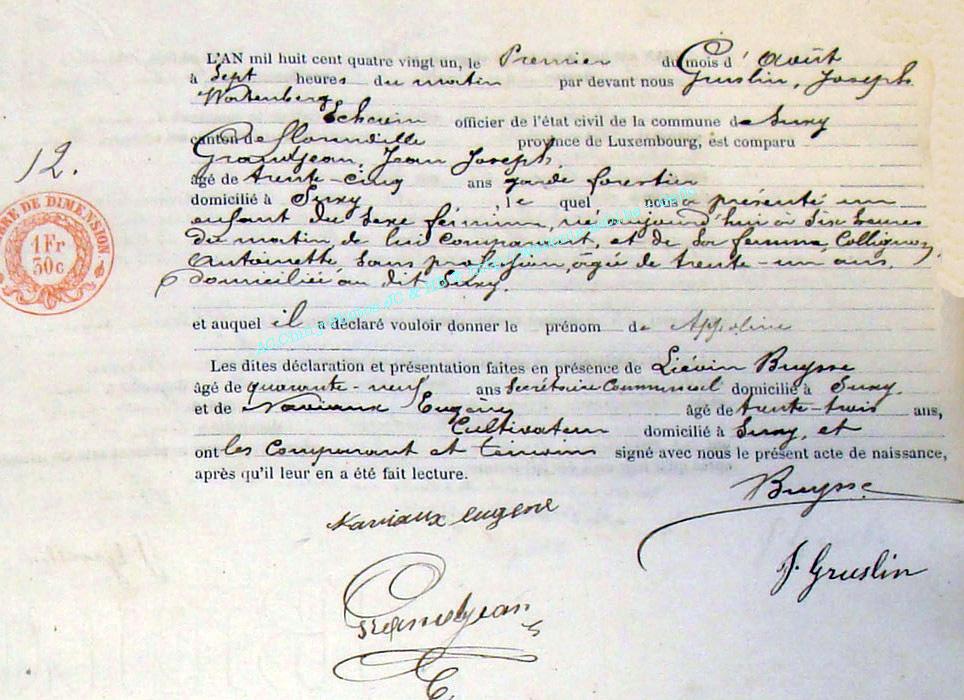 L'AN mil huit cent quatre vingt un, le Premier du mois d' Août
à Sept heures du matin par devant nous Gruslin, Joseph
Echevin officier de l'état civil de la commune de Suxy
canton de Florenville province de Luxembourg, est comparu
Grandjean, Jean Joseph,
12.
âgé de trente-cinq ans garde forestier
domicilié à Suxy, le quel nous a présenté un
enfant du sexe féminin, né aujourd'hui à six heures
du matin, de lui comparant, et de sa femme, Collignon,
Antoinette sans profession, âgée de trente-un ans,
domiciliée au dit Suxy.
DE DIMENSION
1 Fr
50 c
et auquel il a déclaré vouloir donner le prénom de Appoline
Les dites déclaration et présentation faites en présence de Liévin Buysse
âgé de quarante-neuf ans Secrétaire Communal domicilié à Suxy,
et de Naviaux Eugène âgé de trente-trois ans,
Cultivateur domicilié à Suxy, et
ont les comparant et témoins signé avec nous le présent acte de naissance,
après qu'il leur en a été fait lecture.
Buysse
Naviaux eugene
J. Gruslin
Grandjean